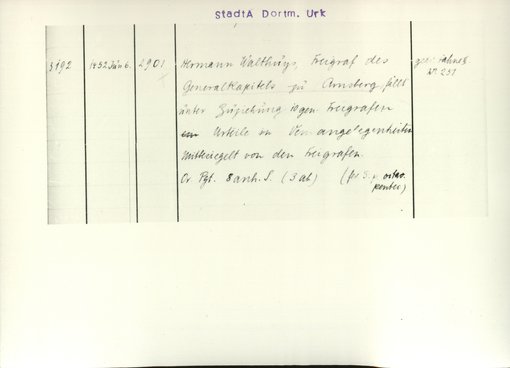 StadtA Dortm. Urk
3192 1452 Jun 6. 2901 Hermann Walthus, Freigraf des
Generalkapitels zu Arnsberg, fällt
unter Zuziehung Freigrafen
Urteile in angelegenheiten
mitbesiegelt von den Freigrafen.
Or. Pgt. 8 anh. S. (3 ab)
Nr 251